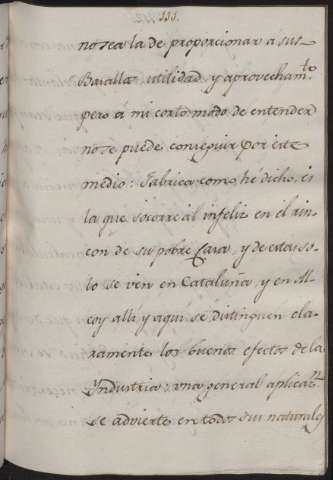 111.
no sea la de proporcionar a sus
Basallos utilidad, y aprovecham.to
pero á mi corto modo de entender
no se puede conseguir por este
medio: Fabrica como hé dicho, es
la que socorre al infeliz en el rin-
con de su pobre Casa, y de estas so-
lo se ven en Cataluña, y en Al-
coy alli y aqui se distinguen cla-
ramente los buenos efectos de la
Yndustria: una general aplicac.n
se advierte en todos sus naturales